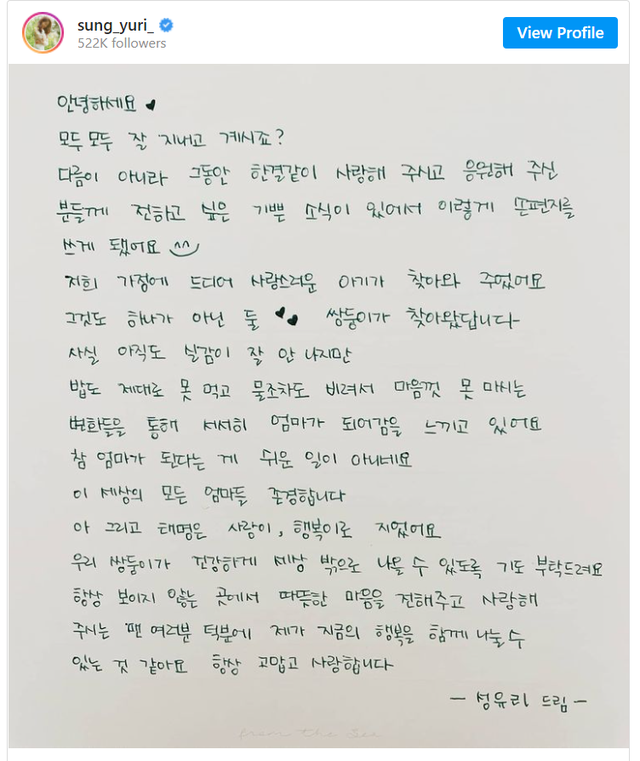 sung_yuri_
522K followers
View Profile
안녕하세요 ♥
모두모두 잘 지내고 계시죠?
다름이 아니라 그동안 한결같이 사랑해 주시고 응원해 주신
분들께 전하고 싶은 기쁜 소식이 있어서 이렇게 손편지를
쓰게 됐어요 ^^
저희 가정에 드디어 사랑스러운 아기가 찾아와 주었어요
그것도 하나가 아닌 둘 ♥♥ 쌍둥이가 찾아왔답니다
사실 아직도 실감이 잘 안 나지만
밥도 제대로 못 먹고 물조차도 비려서 마음껏 못 마시는
변화들을 통해 서서히 엄마가 되어감을 느끼고 있어요
참 엄마가 된다는 게 쉬운 일이 아니네요
이 세상의 모든 엄마들 존경합니다
아 그리고 태명은 사랑이, 행복이로 지었어요
우리 쌍둥이가 건강하게 세상 밖으로 나올 수 있도록 기도 부탁드려요
항상 보이지 않는 곳에서 따뜻한 마음을 전해주고 사랑해
주시는 팬 여러분 덕분에 제가 지금의 행복을 함께 나눌 수
있는 것 같아요 항상 고맙고 사랑합니다
- 성유리 드림 -
from the sea